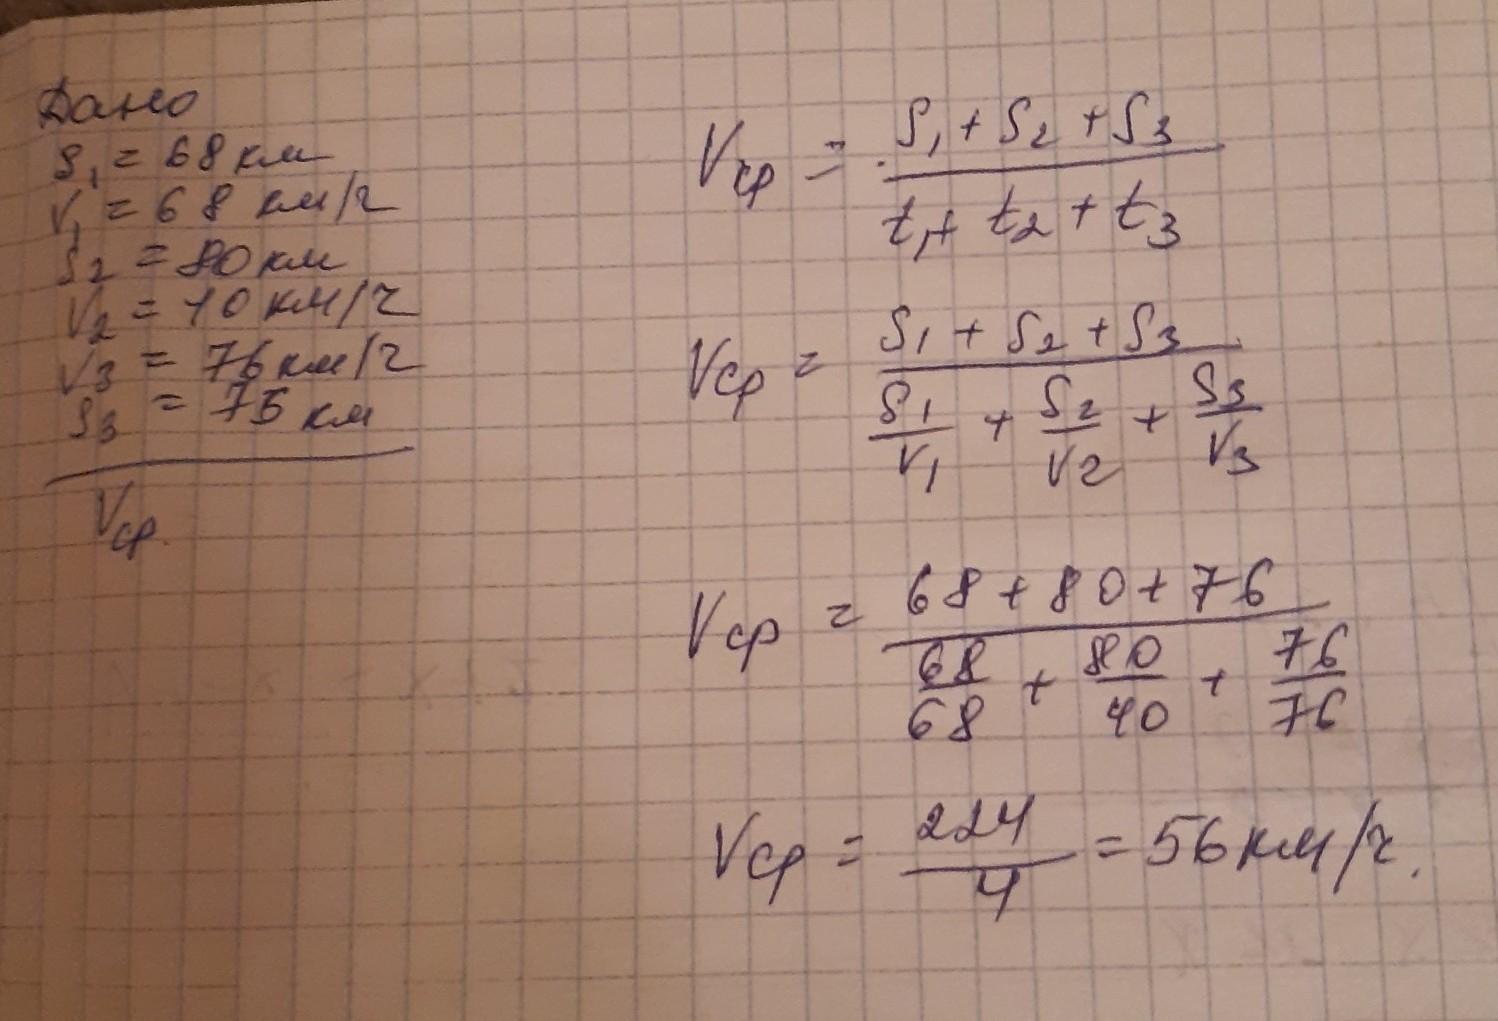 Дано
S₁ = 68 км
V₁ = 68 км/ч
S₂ = 80 км
V₂ = 40 км/ч
V₃ = 76 км/ч
S₃ = 76 км
Vср.
Vср = (S₁ + S₂ + S₃) / (t₁ + t₂ + t₃)
Vср = (S₁ + S₂ + S₃) / (S₁/V₁ + S₂/V₂ + S₃/V₃)
Vср = (68 + 80 + 76) / (68/68 + 80/40 + 76/76)
Vср = 224/4 = 56 км/ч.